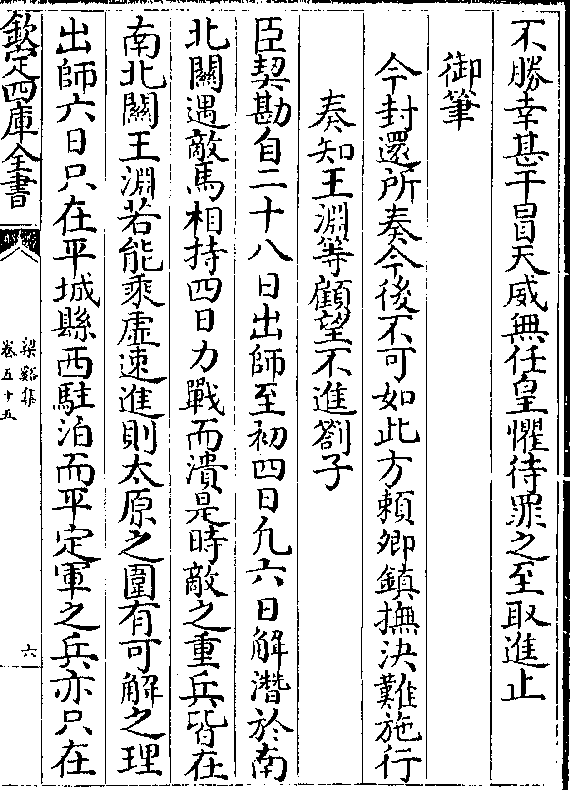 不勝幸甚干冒天威無任皇懼待罪之至取進止
御筆
今封還所奏今後不可如此方頼卿鎮撫決難施行
奏知王淵等顧望不進劄子
臣契勘自二十八日出師至初四日凢六日解濳於南
北關遇敵馬相持四日力戰而潰是時敵之重兵皆在
南北關王淵若能乘虚速進則太原之圍有可解之理
出師六日只在平城縣西駐泊而平定軍之兵亦只在
欽定四庫全書
梁谿集
卷五十五
六